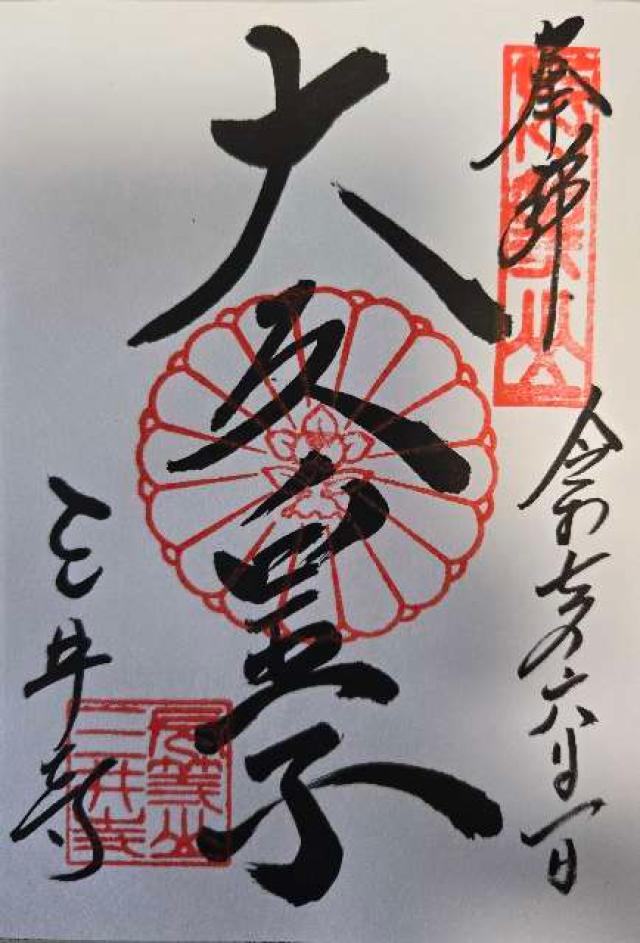 奉拝
長等山
令和七年六月一日
大友皇子
三井寺
長等山
三井寺